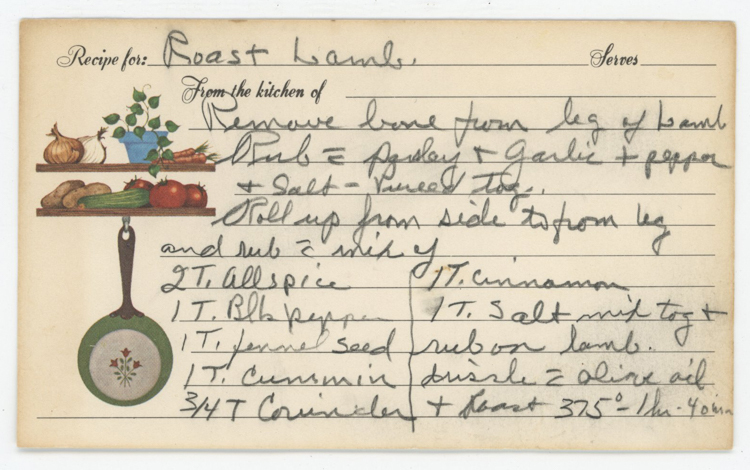 Recipe for: Roast Lamb. Serves
From the kitchen of
Remove bone from leg of Lamb
Rub = parsley + Garlic + pepper
+ Salt - Pureed tog.
Roll up from side to from leg
and rub = mix of
2 T. Allspice
1 T. Blk pepper
1 T. fennel seed
1 T. Cummin
3/4 T Corinder
1 T. Cinnamon
1 T. Salt mix tog +
rub on lamb.
drissle = olive oil
+ Roast 375° - 1 hr - 40 min